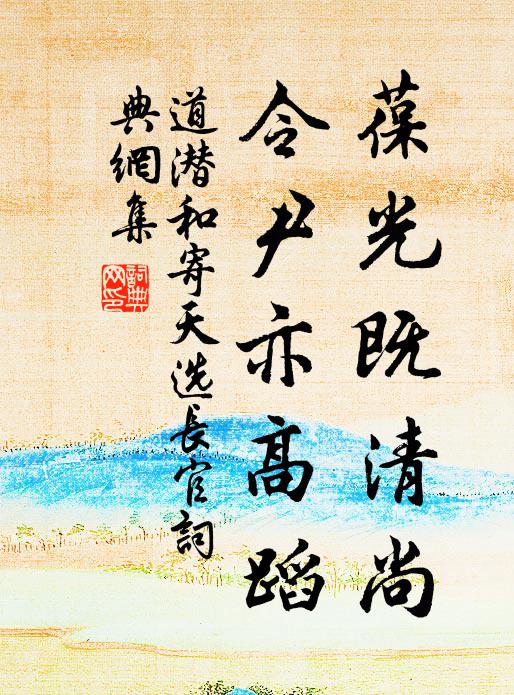 葆光既清尚
令尹亦高蹈
道潜和寄天选長官詞
典網集
詞典网印